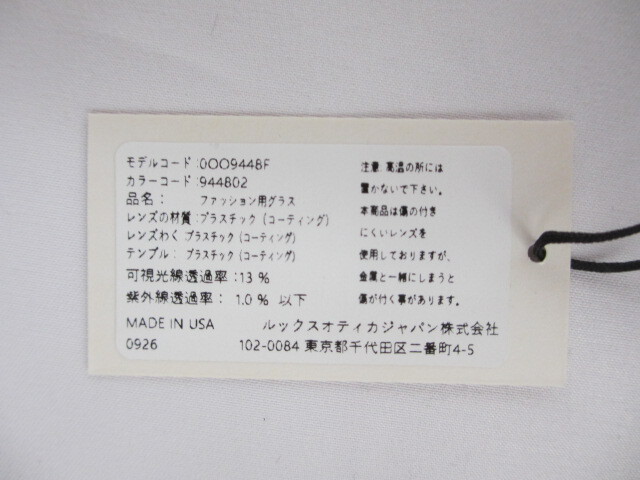 モデルコード:0OO9448F
カラーコード:944802
品名: ファッション用グラス
レンズの材質:プラスチック (コーティング)
レンズわく プラスチック (コーティング)
テンプル: プラスチック (コーティング)
可視光線透過率:13 %
紫外線透過率: 1.0 % 以下
MADE IN USA
0926
注意 高温の所には
置かないで下さい。
本商品は傷の付き
にくいレンズを
使用しておりますが、
金属と一緒にしまうと
傷が付く事があります。
ルックスオティカジャパン株式会社
102-0084 東京都千代田区二番町4-5